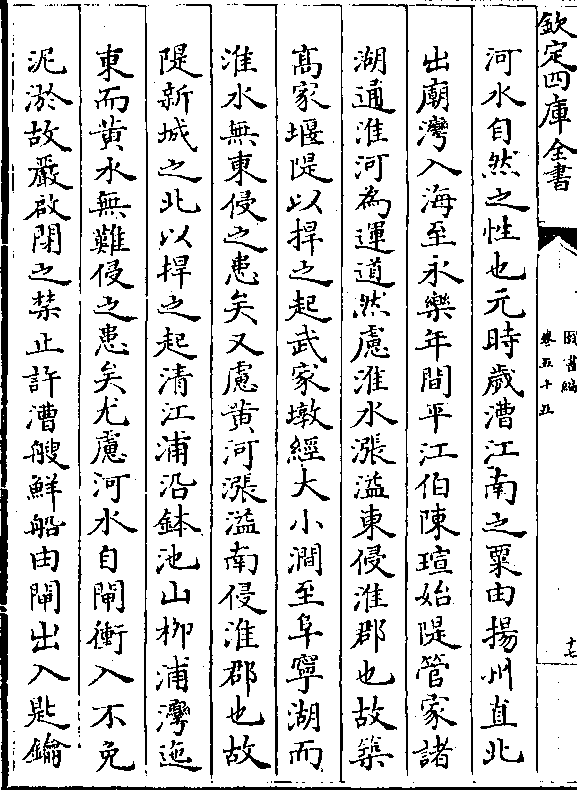 欽定四庫全書
圖書編
卷五十五
十七
河水自然之性也元時歲漕江南之粟由揚州直北
出廟灣入海至永樂年間平江伯陳瑄始隄管家諸
湖通淮河為運道然慮淮水漲溢東侵淮郡也故築
髙家堰隄以捍之起武家墩經大小澗至阜寧湖而
淮水無東侵之患矣又慮黄河漲溢南侵淮郡也故
隄新城之北以捍之起清江浦沿鉢池山柳浦灣迤
東而黄水無難侵之患矣尤慮河水自閘衝入不免
泥淤故嚴啟閉之禁止許漕艘鮮船由閘出入匙鑰